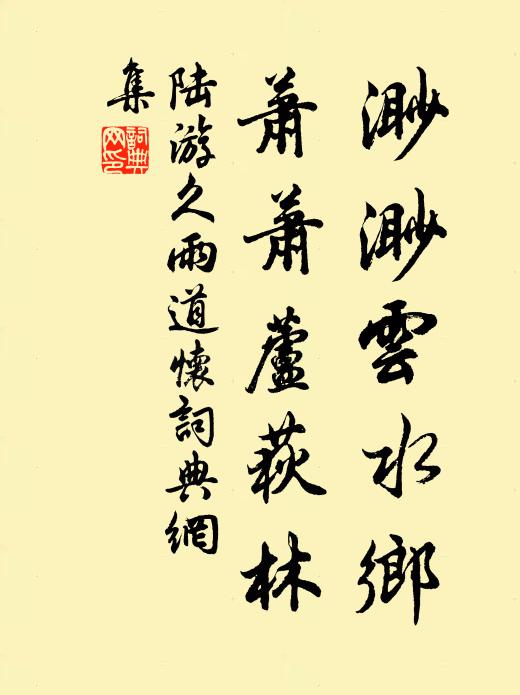 渺渺雲水鄉
蕭蕭蘆荻林
陸游久雨道懷詞典網
集
詞典
网印